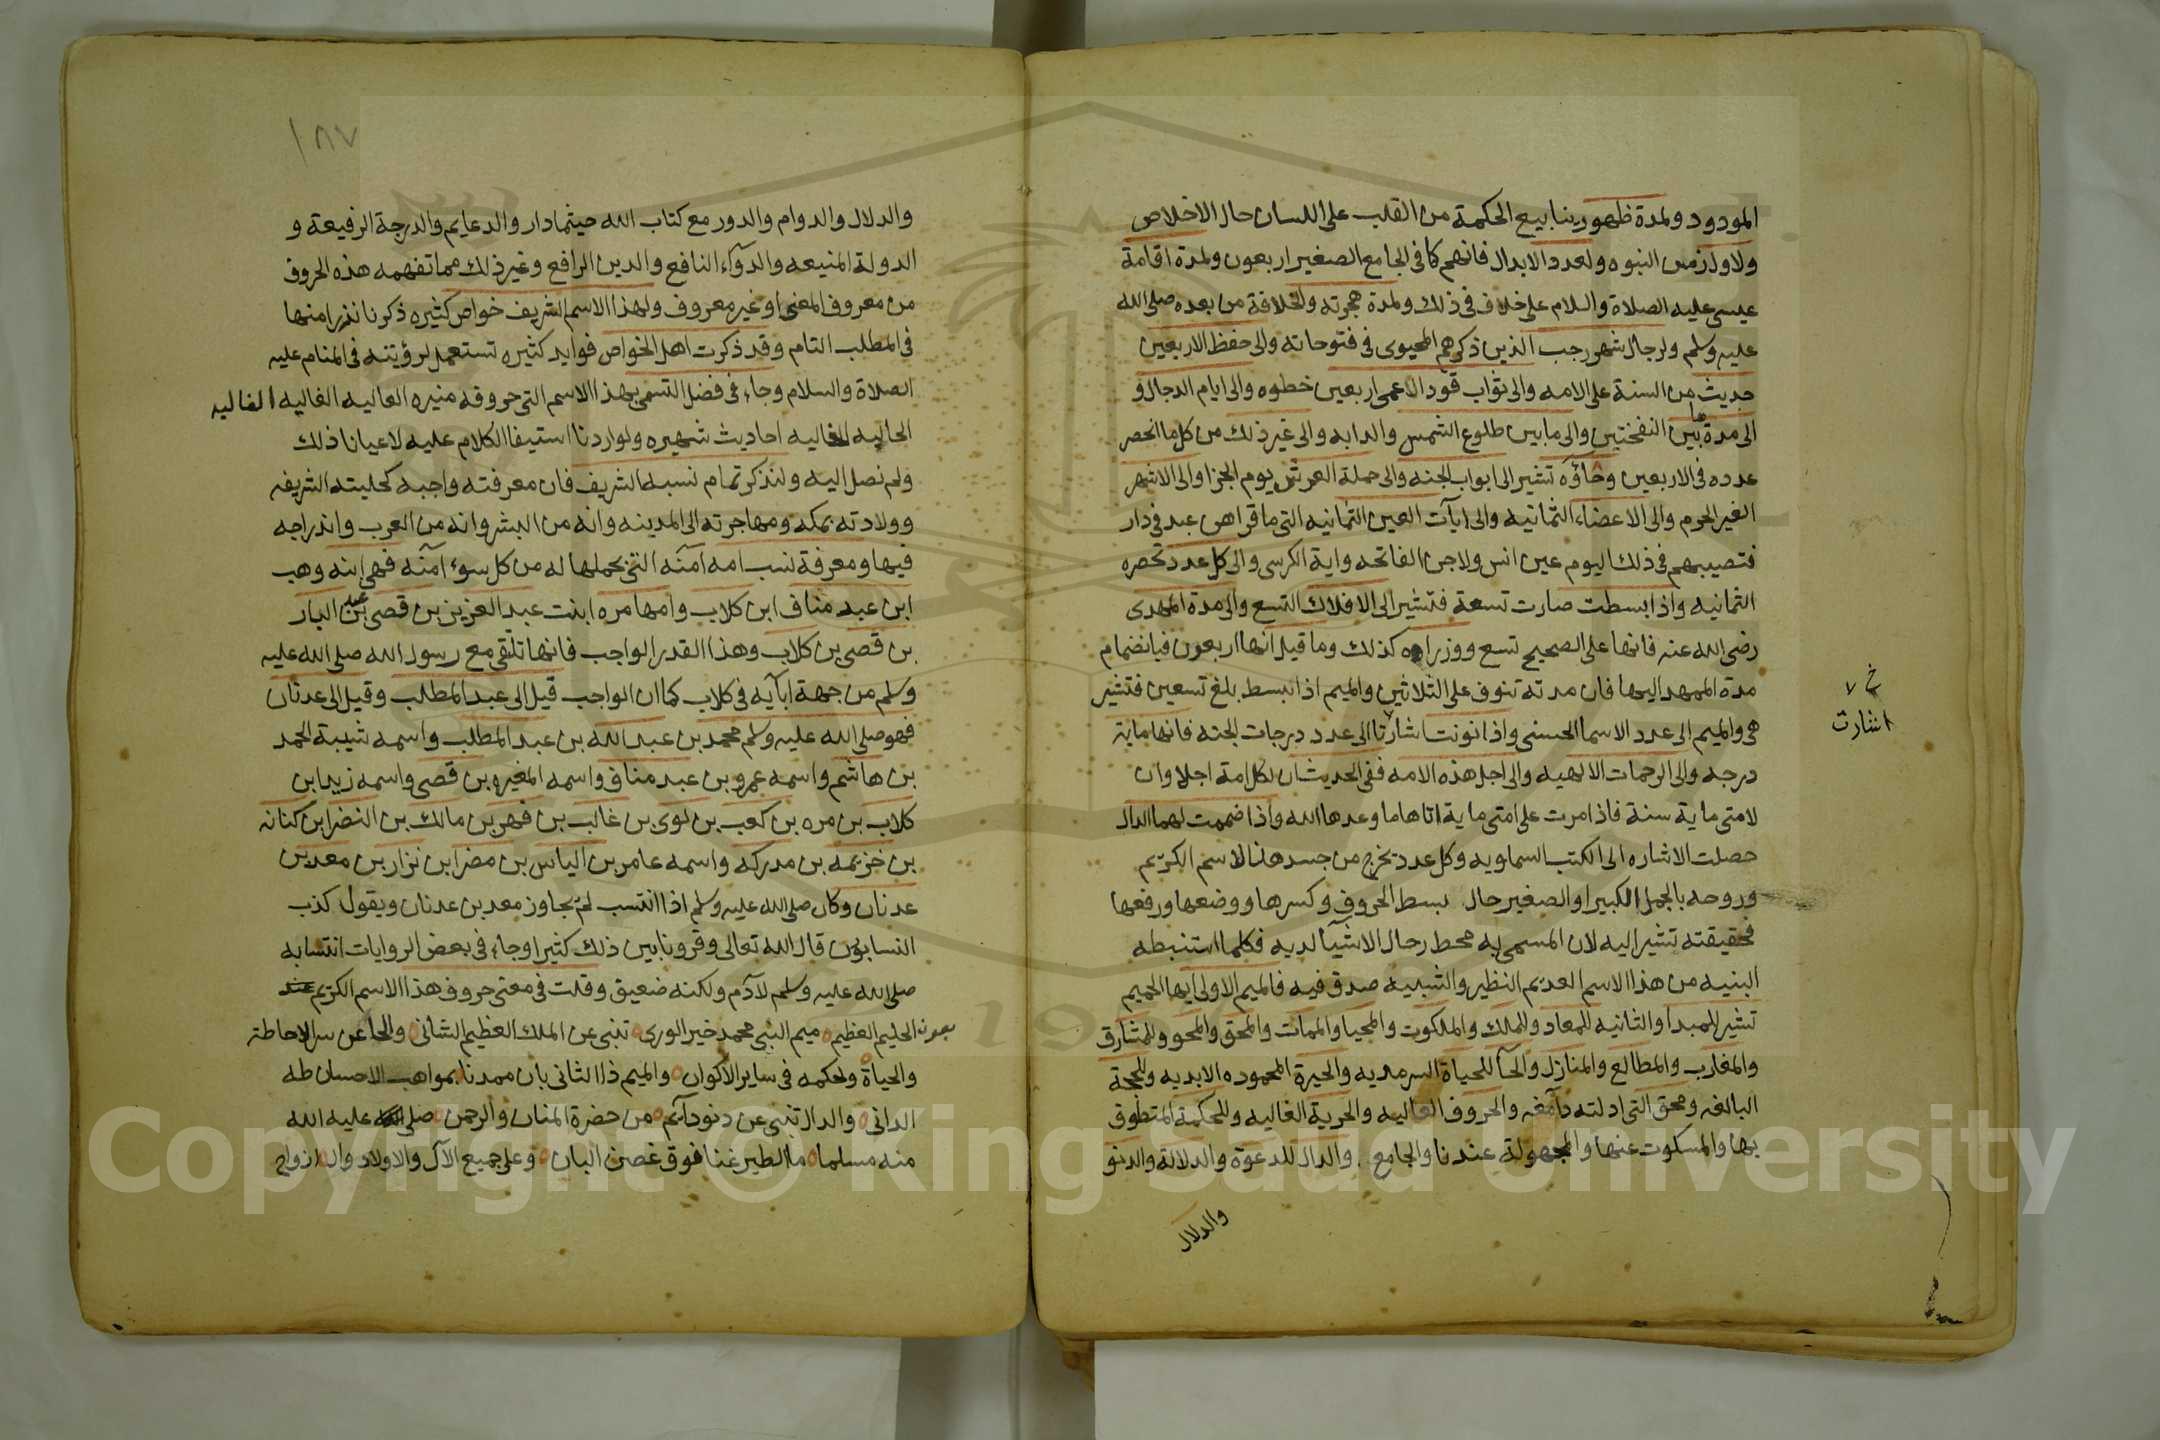 المودود ولمدة ظهور ينابيع الحكمة من القلب على اللسان حال الاخلاص
ولاول زمن النبوه ولعدد الابدال فانهم كما في الجامع الصغير اربعون ولمدة اقامة
عيسى عليه الصلاة والسلام على خلاف في ذلك ولمدة هجرته والخلافة من بعده صلى الله
عليه وسلم ولرجال شهر رجب الذين ذكرهم المحيوى في فتوحاته والى حفظ الاربعين
حديث من السنة على الامه والى ثواب قود الاعمى اربعين خطوه والى ايام الدجال و
الى مدة ما بين النفختين والى ما بين طلوع الشمس والدابه والى غير ذلك من كل ما انحصر
عدده في الاربعين وحاؤه تشير الى ابواب الجنه والى حملة العرش يوم الجزا والى الاشهر
الغير الحرم والى الاعضاء الثمانيه والى ايآت العين الثمانيه التي ما قراهن عبد في دار
فتصيبهم في ذلك اليوم عين انس ولا جن الفاتحه واية الكرسي والى كل عدد تحصره
الثمانيه واذا بسطت صارت تسعة فتشير الى الافلاك التسع والى مدة المهدى
رضى الله عنه فانها على الصحيح تسع ووزراوه كذلك وما قيل انها اربعون فبانضمام
مدة الممهد اليها فان مدته تنوف على الثلاثين والميم اذا بسط بلغ تسعين فتشير
هى والميم الى عدد الاسما الحسنى واذا نونت اشارتا الى عدد درجات الجنه فانها ماية
درجه والى الرحمات الالهيه والى اجل هذه الامه ففى الحديث ان لكل امة اجلا وان
لامتى ماية سنة فاذا مرت على امتى ماية اتاها ما وعدها الله واذا ضممت لهما الدال
حصلت الاشاره الى الكتب السماويه وكل عدد يخرج من جسد هذا الاسم الكريم
وروحه بالجمل الكبير او الصغير حال بسط الحروف وكسرها ووضعها ورفعها
فحقيقته تشير اليه لان المسمى به محط رحال الاشيآ لديه فكلما استنبطه
البنيه من هذا الاسم العديم النظير والشبيه صدق فيه فالميم الاولى ايها الحميم
تشير للمبدا والثانيه للمعاد وللملك والملكوت والمحيا والممات والمحق والمحو وللمشارق
والمغارب والمطالع والمنازل والحآ للحياة السرمديه والحيرة المحموده الابديه وللحجة
البالغه ومحق التي ادلته دآمغه والحروف العاليه والحرية الغاليه وللحكمة المنطوق
بها والمسكوت عنها والمجهولة عندنا والجامع . والدال للدعوة والدلالة والدنو
والدلال
خ ٧
اشارت
١٨٧
والدلال والدوام والدور مع كتاب الله حيثما دار والدعايم والدرجة الرفيعة و
الدولة المنيعه والدوآء النافع والدين الرافع وغير ذلك مما تفهمه هذه الحروف
من معروف المغنى او غير معروف ولهذا الاسم الشريف خواص كثيره ذكرنا نذرا منها
في المطلب التام وقد ذكرت اهل الخواص فوايد كثيره تستعمل لرؤيته في المنام عليه
الصلاة والسلام وجاء في فضل التسمى بهذا الاسم التي حروفه منيره العاليه الغاليه الغاليه
الحاليه احاديث شهيره ولو اردنا استيفا الكلام عليه لاعيانا ذلك
ولم نصل اليه ولنذكر تمام نسبه الشريف فان معرفته واجبه كحليته الشريفه
وولادته بمكه ومهاجرته الى المدينه وانه من البشر وانه من العرب واندراجه
فيها ومعرفة نسب امه آمنه التي بحملها له من كل سوء آمنه فهى ابنه وهب
ابن عبد مناف ابن كلاب وامها مره ابنت عبد العزيز بن قصى بن عبد البار
بن قصى بن كلاب وهذا القدر الواجب فانها تلتقى مع رسول الله صلى الله عليه
وسلم من جهة ابآيه في كلاب كما ان الواجب قيل الى عبد المطلب وقيل الى عدنان
فهو صلى الله عليه وسلم محمد بن عبد الله بن عبد المطلب واسمه شيبة الحمد
بن هاشم واسمه عمرو بن عبد مناف واسمه المغيره بن قصى واسمه زيد ابن
كلاب بن مره بن كعب بن لوى بن غالب بن فهر بن مالك بن النضر ابن كنانه
بن خزيمه بن مدركه واسمه عامر بن الياس بن مضر ابن نزار بن معد بن
عدنان وكان صلى الله عليه وسلم اذا انتسب لم يجاوز معد بن عدنان ويقول كذب
النسابون قال الله تعالى وقرونا بين ذلك كثيرا وجاء في بعض الروايات انتسابه
صلى الله عليه وسلم لآدم ولكنه ضعيف وقلت في معنى حروف هذا الاسم الكريم
بعون الحليم العظيم ميم النبى محمد خير الورى تنبى عن الملك العظيم الشانى والحا عن سر الاحاطة
والحياة ولحكمه في ساير الاكوان والميم ذا الثانى بان ممدنا بمواهب الاحسان طه
الدانى والدال تنبى عن دنو دآئم من حضرة المنان والرحمن صلى عليه الله
منه مسلما ما الطير غنا فوق غصن البان وعلى جميع الآل والاولاد والازواج